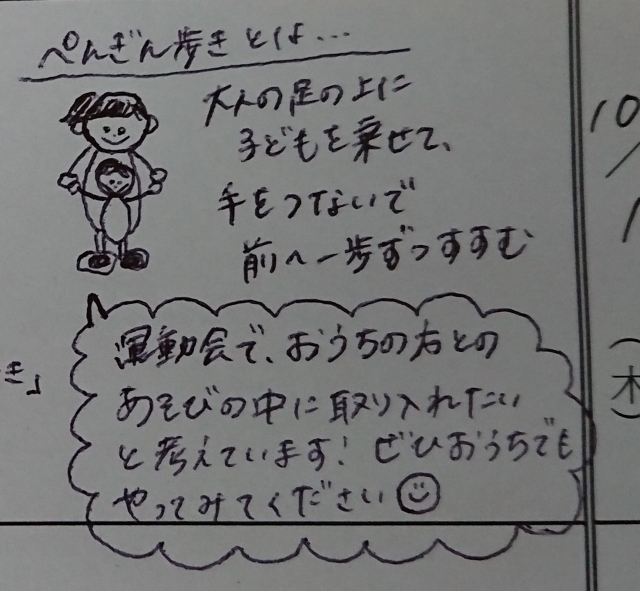 ぺんぎん歩きとは…
大人の足の上に
子どもを乗せて、
手をつないで
前へ一歩ずつすすむ
運動会で、おうちの方との
あそびの中に取り入れたい
と考えています! ぜひおうちでも
やってみてください
き」
10
/
1
(木)